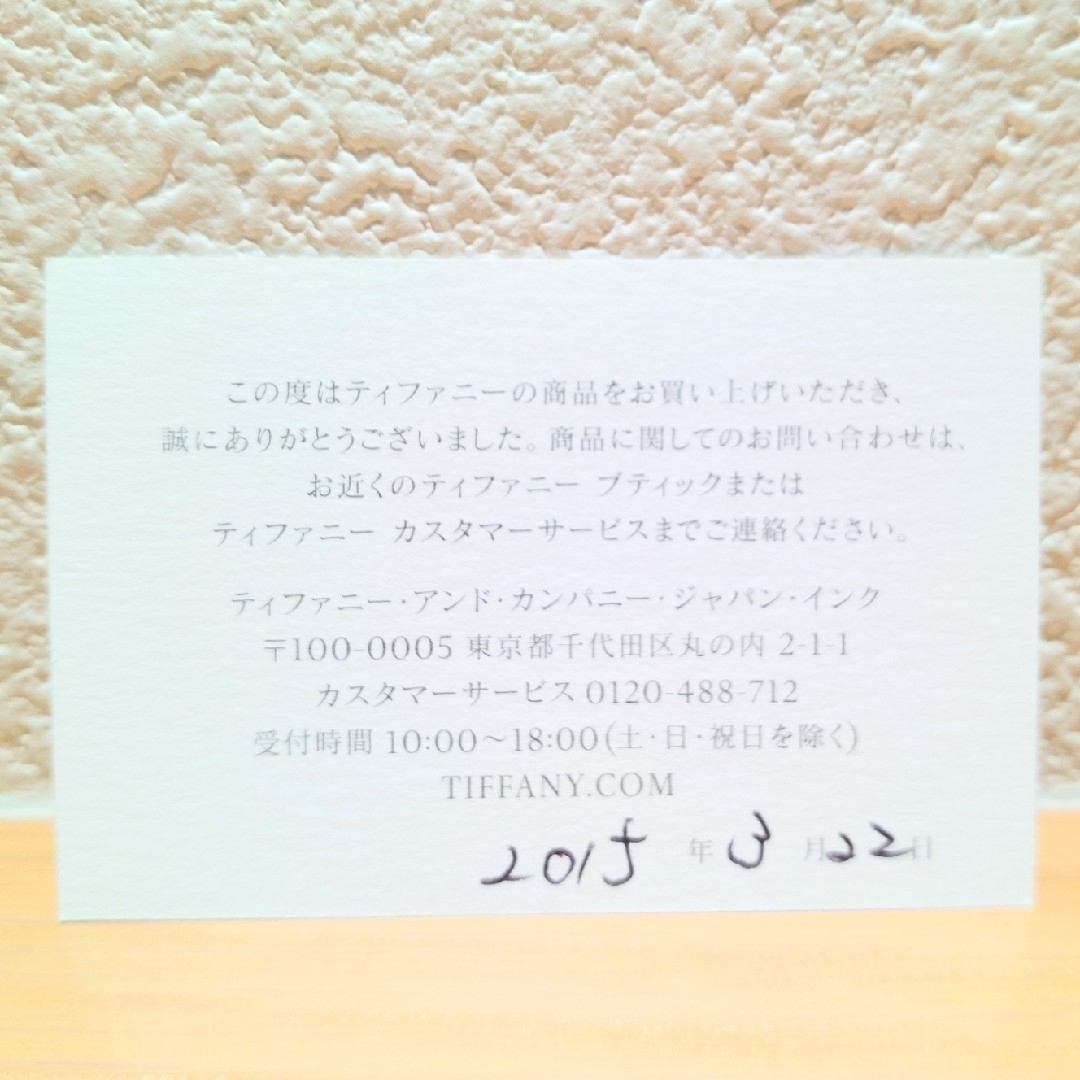 この度はティファニーの商品をお買い上げいただき、
誠にありがとうございました。商品に関してのお問い合わせは、
お近くのティファニー ブティックまたは
ティファニー カスタマーサービスまでご連絡ください。
ティファニー・アンド・カンパニー・ジャパン・インク
〒100-0005 東京都千代田区丸の内 2-1-1
カスタマーサービス 0120-488-712
受付時間 10:00〜18:00(土・日・祝日を除く)
TIFFANY.COM
2015 年 3 月 22 日